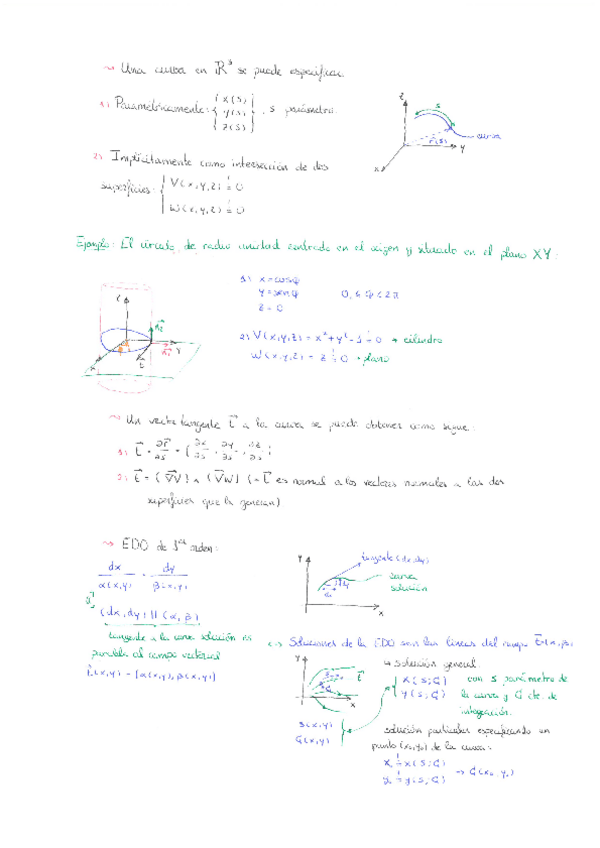 ~> Una curva en ℝ³ se puede especificar:
1) Paramétricamente: { x(s) y(s) z(s) }, s parámetro.
z
s
curva
r(s)
y
x
2) Implícitamente como intersección de dos
superficies: { V(x,y,z) = 0
W(x,y,z) = 0
Ejemplo: El círculo, de radio unidad centrado en el origen y situado en el plano XY:
1) x = cosφ
y = senφ 0 ≤ φ ≤ 2π
z = 0
2) V(x,y,z) = x² + y² - 1 = 0 → cilindro
W(x,y,z) = z = 0 → plano
~> Un vector tangente t a la curva se puede obtener como sigue:
1) t = ∂r/∂s = (∂x/∂s, ∂y/∂s, ∂z/∂s)
2) t = (∇V) ∧ (∇W) (→ t es normal a los vectores normales a las dos
superficies que la generan)
~> EDO de 1er orden:
dx/α(x,y) = dy/β(x,y)
(dx, dy) || (α, β)
tangente a la curva solución es
paralela al campo vectorial
t(x,y) = (α(x,y), β(x,y))
Y
tangente (dx,dy)
curva
solución
dy
dx
X
Soluciones de la EDO son las líneas del campo t = (α, β):
Y
t
X
→ solución general
{ x(s;G)
y(s;G)
con s parámetro de
la curva y G cte. de
integración.
s(x,y)
G(x,y)
solución particular especificando un
punto (x₀,y₀) de la curva:
x₀ = x(s;G)
y₀ = y(s;G) → G(x₀,y₀)